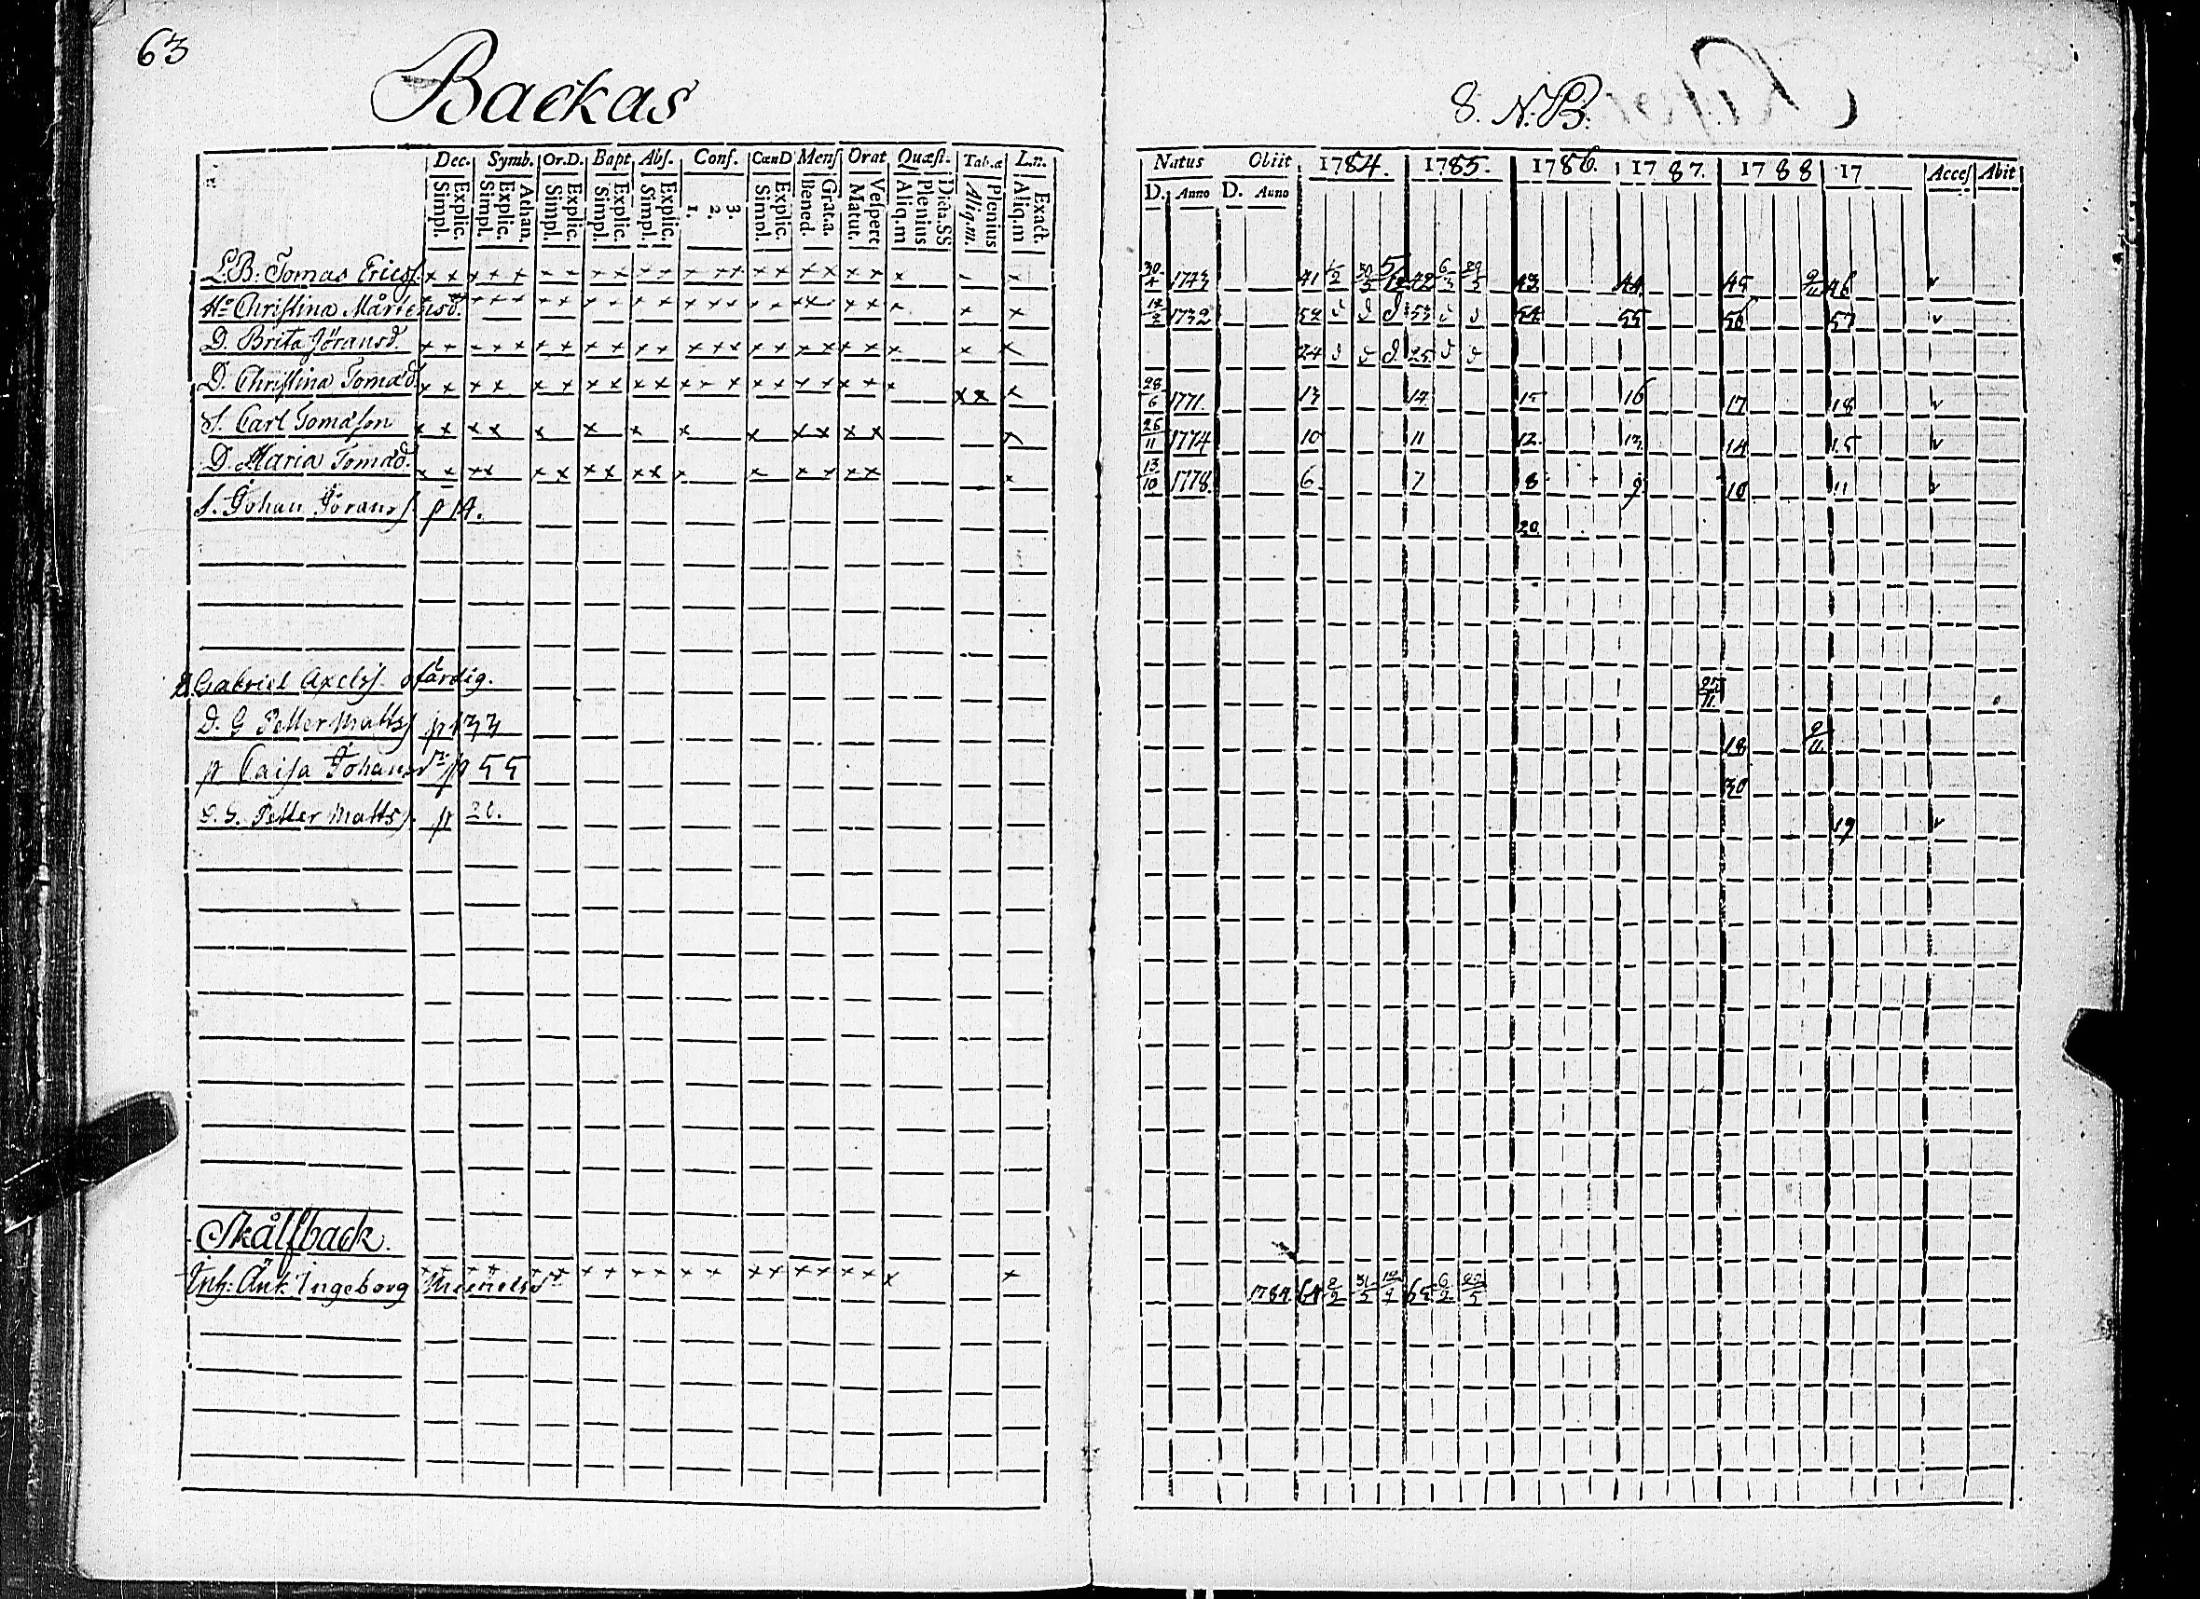 63
Backas
8. N.B.
Dec. Symb. Or.D. Bapt Abs. Conf. CœnD Mens Orat Quæsti. Tab.æ L.n.
Simpl. Explic. Simpl. Explic. Athan. Simpl. Explic. Simpl. Explic. Simpl. Explic. 1. 2. 3. Simpl. Explic. Bened. Grat.a. Matut. Vespert Aliq.m Plenius Dicta.SS Aliq.m. Plenius Aliq.m Exact.
Natus Obiit 1784. 1785. 1786. 1787. 1788 17 Acces Abit
D. Anno D. Anno
L.B: Tomas Ericss. x x x x x x x x x x x x x x x x x x x x x 30/4 1743 41 30/5 42 6/3 29/5 43 44 45 9/11 46 v
H:o Christina Mårtensd. 1732 52 53 54 55 56 57 v
D. Brita Jöransd. 24 25
D. Christina Tomasd. 28/6 1771. 13 14 15 16 17 18 v
S. Carl Tomasson 26/11 1774 10 11 12. 13. 14 15 v
D. Maria Tomasd. 13/10 1778. 6 7 8 9 10 11 v
S. Johan Jöranss. p 14. 20.
Gabriel Axelss. ofärdig. 25/11.
D. G Petter Mattss p 133 18 9/11
p Caisa Johansd:r p 55 30
D. G. Petter Mattss. p 20. 19 v
Skålfback.
Inh: Änk: Ingeborg 1784. 64 65